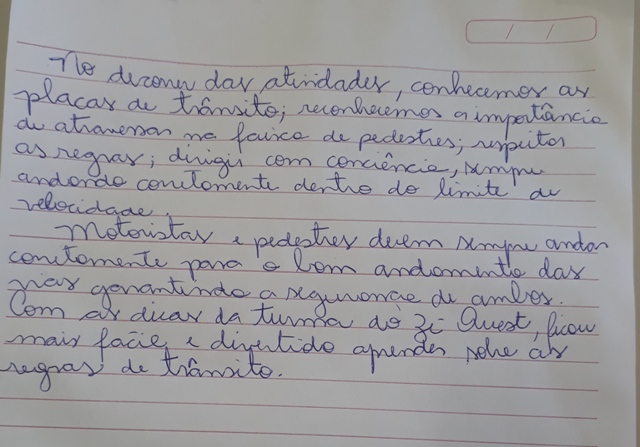 No decorrer das atividades, conhecemos as
placas de trânsito; reconhecemos a importância
de atravessar na faixa de pedestres; respeitar
as regras; dirigir com conciência, sempre
andando corretamente dentro do limite de
velocidade.
Motoristas e pedestres devem sempre andar
corretamente para o bom andamento das
vias garantindo a segurança de ambos.
Com as dicas da turma do Zé Quest, ficou
mais fácil e divertido aprender sobre as
regras de trânsito.